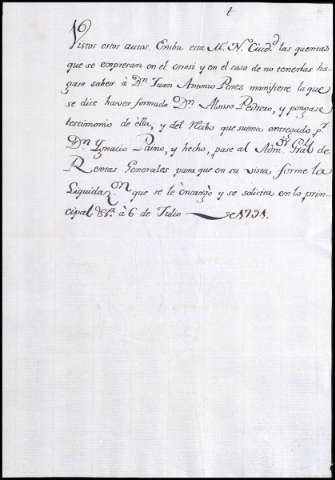 Vistos estos autos. Embie esta M. N. Ciud.d las quentas
que se expresan en el  y en el caso de no tenerlas ha
gase saber á Dn. Juan Antonio Perez manifieste la que
se dice haver formado Dn. Alonso Pedrero, y pongase
testimonio de ella, y del  que suena entregado pr.
Dn. Ygnacio Paino, y hecho, pase al Adm.or Gral de
Rentas Generales para que en su vista forme la
Liquidaz.on que se le encarga y se solicita en lo prin-
cipal  á 6 de Julio de 1791.